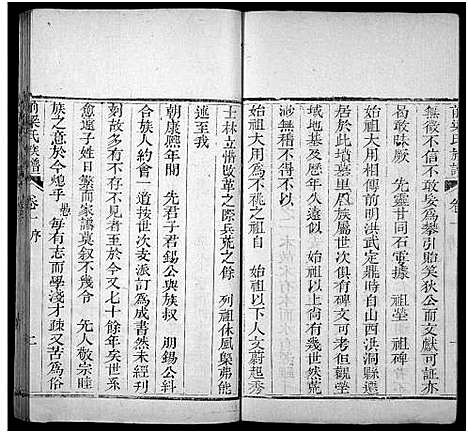 無徵不信不敢妄為攀引貽笑狄公而文獻可証亦
曷敢昧厥 先靈甘同石 祖塋 祖碑
始祖大用公原係前明洪武定鼎時自山西洪洞縣遷
居於此墳墓里居俱有碑文可
域地基及年久遠似 始祖以前有幾世然荒
始祖大用為不祧之祖 始祖以下人文蔚起秀
士林立惜改革之際兵荒之餘 列祖休風槩弗能
述至我
朝康熙年間 先君子君錫公與族叔 朋錫公糾
合族人約會一道按世次支派訂為成書然未經刊
刻故多有存不見者至於今又七十餘年矣世系
愈遠子姓日繁而家譜莫敘不幾令 先人敬宗睦
族之意於今熄乎愚每有志而學淺才疎又苦為俗
前梁氏族譜 卷一 序 二